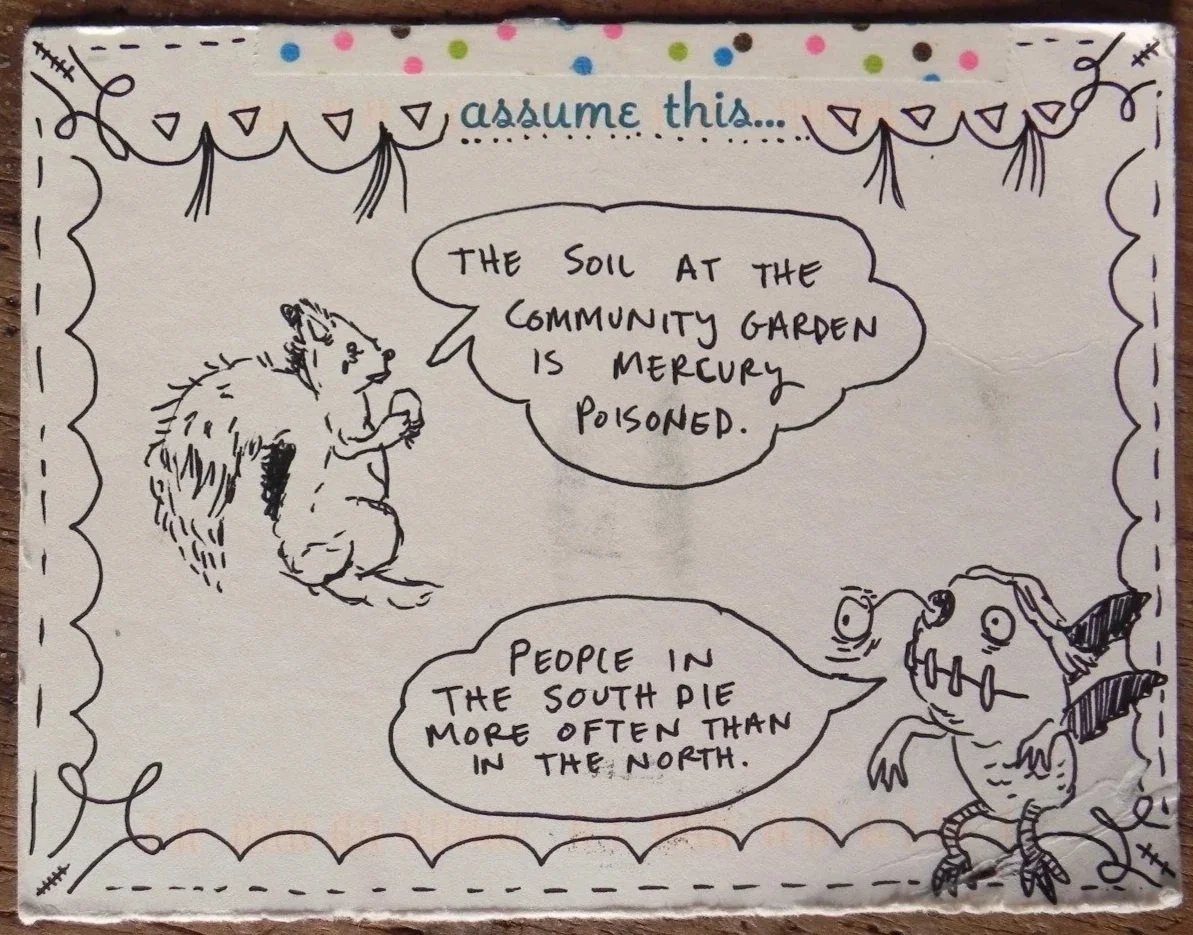 assume this...
THE SOIL AT THE
COMMUNITY GARDEN
IS MERCURY
POISONED.
PEOPLE IN
THE SOUTH DIE
MORE OFTEN THAN
IN THE NORTH.